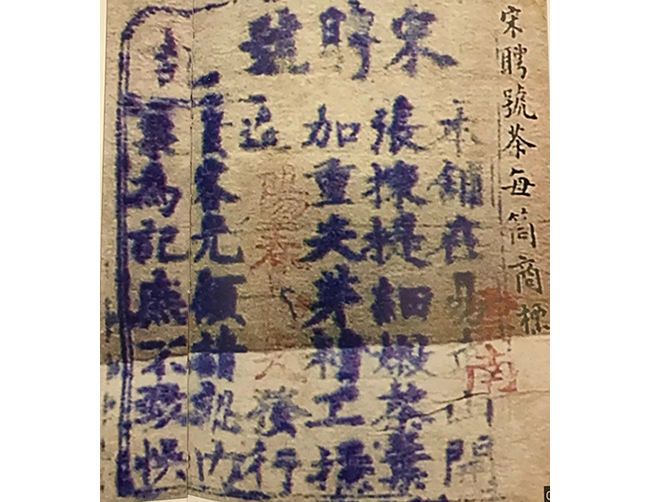 宋聘號茶每筒商標
宋聘號
本鋪在易武山開
張揀提細嫩茶葉
加重尖芽精工揉
造
發行
貴客光顧請認內
票為記庶不致悮
南